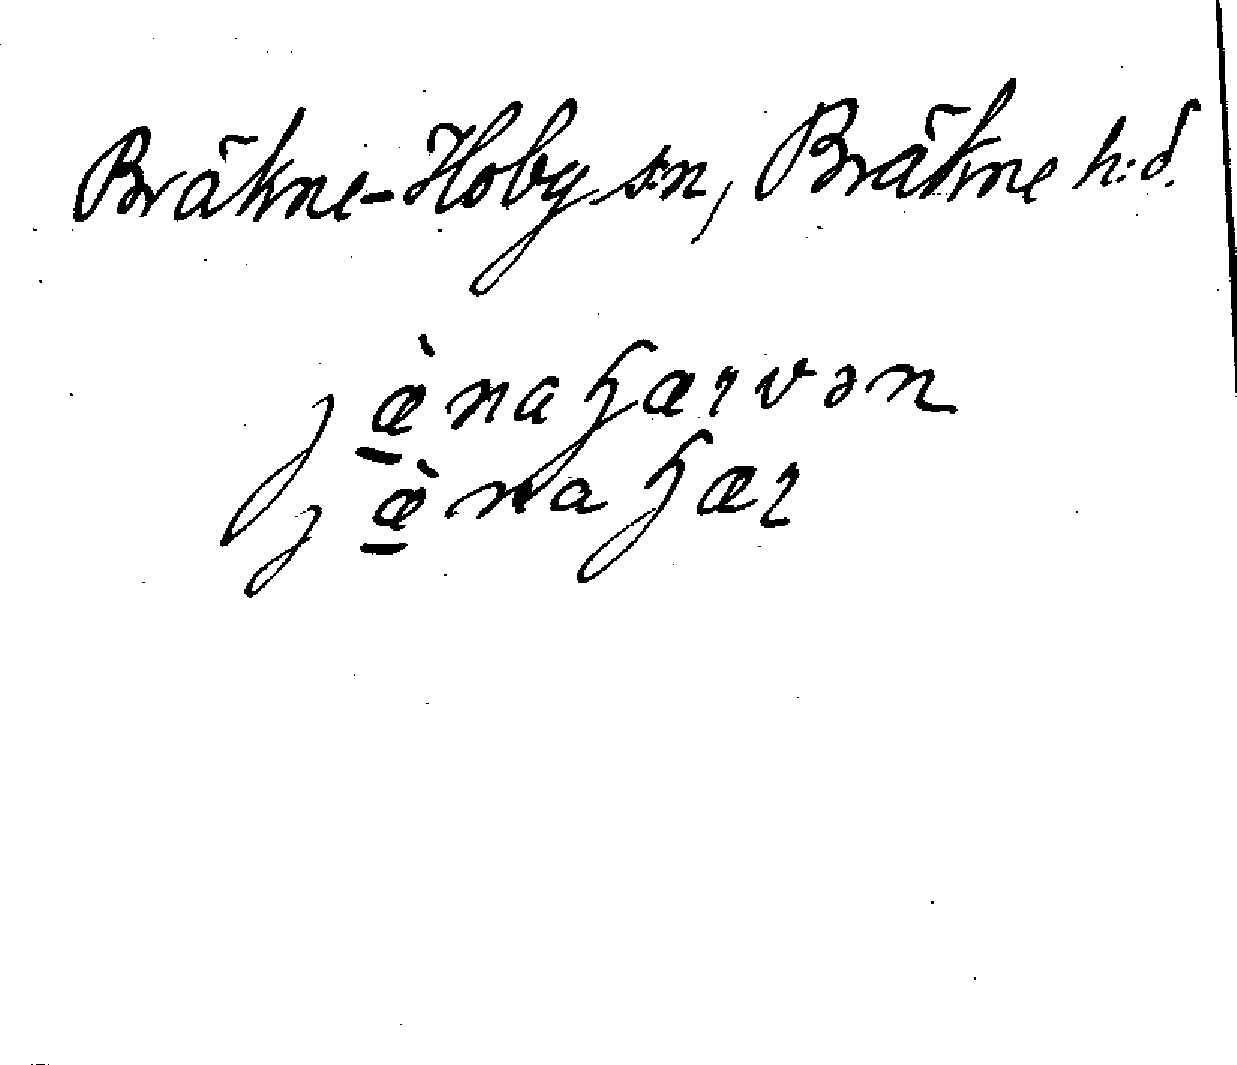 Bräkne-Hoby sn, Bräkne h:d.
jæ̱̀naɧærvən
jæ̱̀naɧær